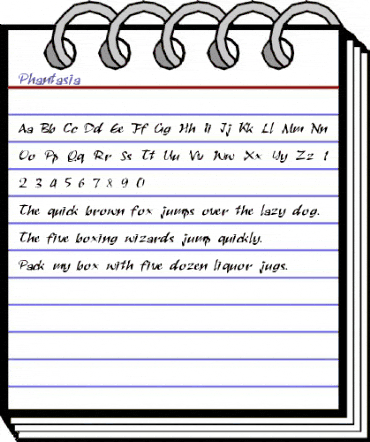 Phantasia
Aa Bb Cc Dd Ee Ff Gg Hh Ii Jj Kk Ll Mm Nn
Oo Pp Qq Rr Ss Tt Uu Vv Ww Xx Yy Zz 1
2 3 4 5 6 7 8 9 0
The quick brown fox jumps over the lazy dog.
The five boxing wizards jump quickly.
Pack my box with five dozen liquor jugs.